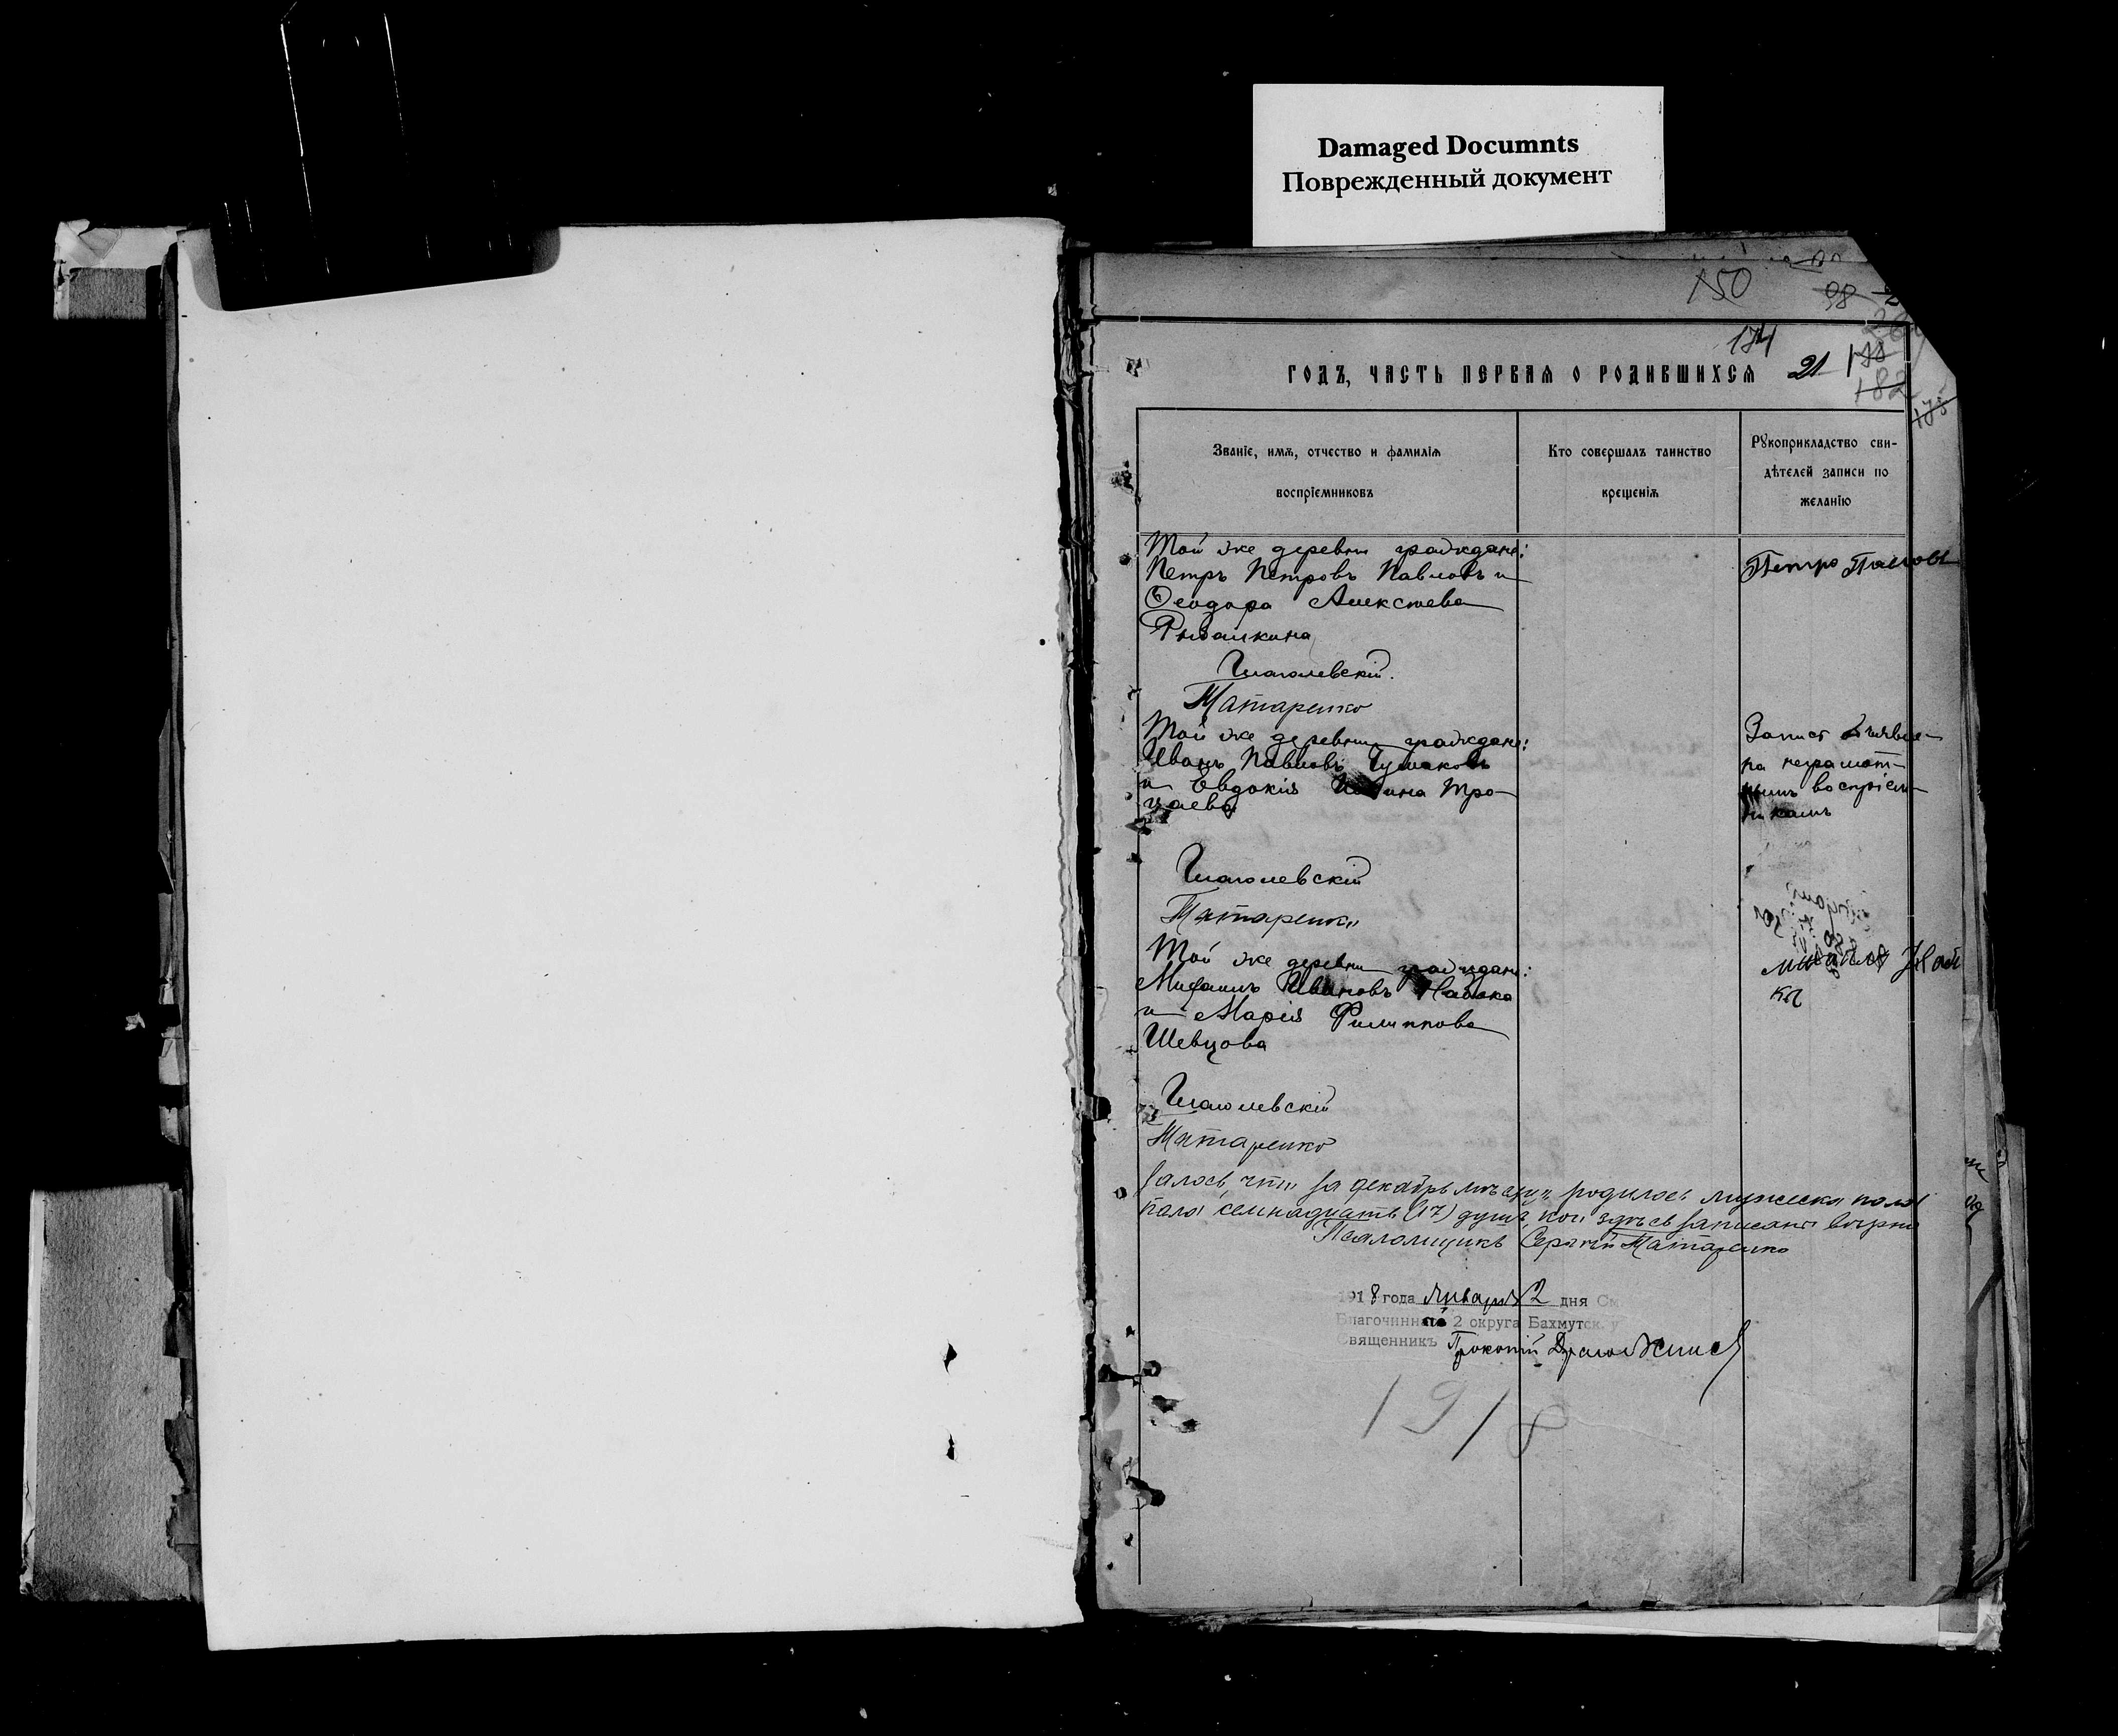 Damaged Documnts
Поврежденный документ
150
98
174
ГОДЪ, ЧАСТЬ ПЕРВАЯ О РОДИВШИХСЯ 21
182
175
Званіе, имя, отчество и фамилія
воспріемниковъ
Кто совершалъ таинство
крещенія
Рукоприкладство сви-
дѣтелей записи по
желанію
Той же деревни граждане:
Петръ Петровъ Павловъ и
Ѳеодора Алексѣева
Рыбалкина
Глаголевскій.
Матаренко
Петро Павловъ
Той же деревни граждане:
Иванъ Павловъ Чумаковъ
и Евдокія
Глаголевскій
Матаренко
Запись
на неграмот-
нымъ воспріем-
никамъ
Той же деревни граждане:
Михаилъ Ивановъ Набока
и Марія Филиппова
Шевцова
Глаголевскій
Матаренко
залось, что за декабрь мѣсяцъ родилось мужеска пола
пола семнадцать (17) душъ, кои здѣсь записаны вѣрно
Псаломщикъ Сергій Матаренко
1918 года Января 2 дня См
Благочинный 2 округа Бахмутск. у
Священникъ Прокопій
1918